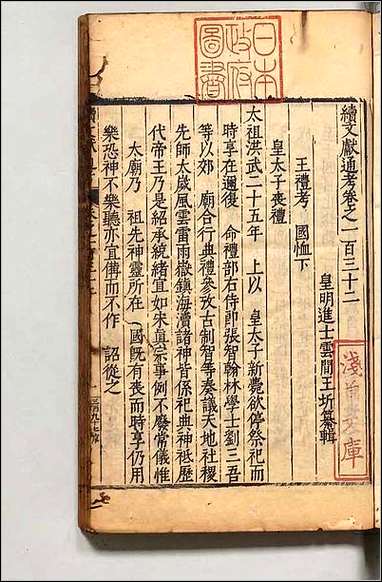 續文獻通考卷之一百三十二
皇明進士雲間王圻纂輯
王禮考　國恤下
皇太子喪禮
太祖洪武二十五年　上以　皇太子新薨欲停祭祀而
時享在邇復　命禮部右侍郎張智翰林學士劉三吾
等以郊　廟合行典禮參攷古制智等奏議天地社稷
先師太歲風雲雷雨嶽鎮海瀆諸神皆係祀典神祗歷
代帝王乃是紹承統緒宜如宋真宗事例不廢常儀惟
太廟乃　祖先神靈所在　國既有喪而時享仍用
樂恐神不樂聽亦宜備而不作　詔從之
日本
政府
圖書
淺草文庫